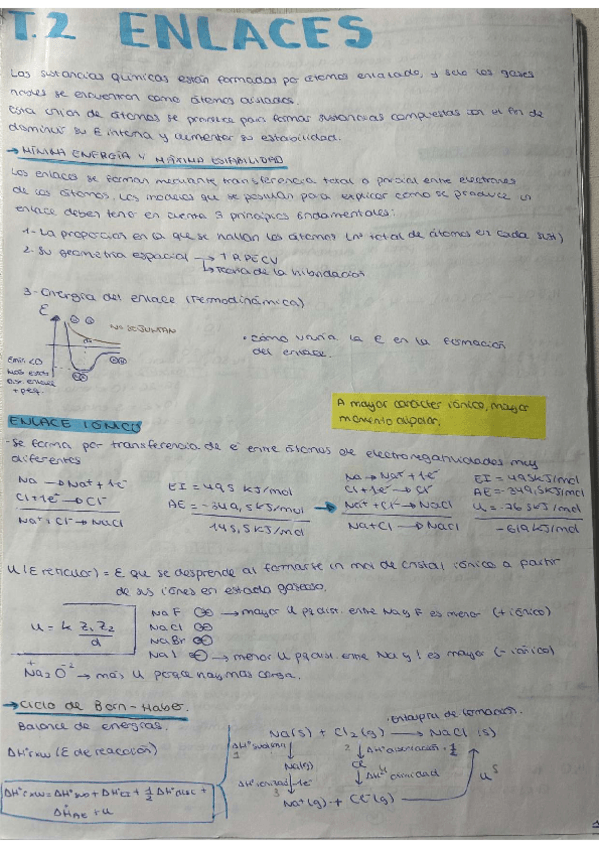 T.2 ENLACES
Las sustancias químicas están formadas por átomos enlazado, y solo los gases
nobles se encuentran como átomos aislados.
Esta unión de átomos se produce para formar sustancias compuestas con el fin de
dominar su E interna y aumentar su estabilidad.
→ MÍNIMA ENERGÍA Y MÁXIMA ESTABILIDAD
Los enlaces se forman mediante transferencia total o parcial entre electrones
de los átomos. Los modelos que se postulan para explicar como se produce un
enlace deben tener en cuenta 3 principios fundamentales:
1- La proporción en la que se hallan los átomos (nº total de átomos en cada sust)
2- Su geometría espacial → TRPECV
↳ Teoría de la hibridación
3- Energía del enlace (Termodinámica)
E
NO SE JUNTAN
· cómo varía la E en la formación
del enlace.
Emin. <0
+ peq.
A mayor carácter iónico, mayor
momento dipolar.
ENLACE IÓNICO
- Se forma por transferencia de e⁻ entre átomos de electronegatividades muy
diferentes
Na → Na⁺ + 1e⁻ EI = 495 kJ/mol
Cl + 1e⁻ → Cl⁻ AE = -349,5 kJ/mol →
Na⁺ + Cl⁻ → NaCl 145,5 kJ/mol
Na → Na⁺ + 1e⁻ EI = 495 kJ/mol
Cl + 1e⁻ → Cl⁻ AE = -349,5 kJ/mol
Na⁺ + Cl⁻ → NaCl U = -765 kJ/mol
Na + Cl → NaCl -619 kJ/mol
U (E reticular) = E que se desprende al formarse un mol de cristal iónico a partir
de sus iones en estado gaseoso.
U = k Z₁Z₂/d
NaF → mayor U pq dist. entre Na y F es menor (+ iónico)
NaCl
NaBr
NaI → menor U pq dist. entre Na y I es mayor (- iónico)
Na₂⁺O²⁻ → más U porque hay más carga.
→ Ciclo de Born-Haber.
Balance de energías.
ΔHºrxn (E de reacción)
ΔHºrxn = ΔHºsub + ΔHºEI + 1/2 ΔHºdisc +
ΔHAE + U
· Entalpía de formación.
Na(s) + Cl₂(g) → NaCl (s)
1 2 ΔHºdisociación · 1/2
Na(g) Cl
3 -1e⁻ 4 ΔHºafinidad
U 5
Na⁺(g) + Cl⁻(g)